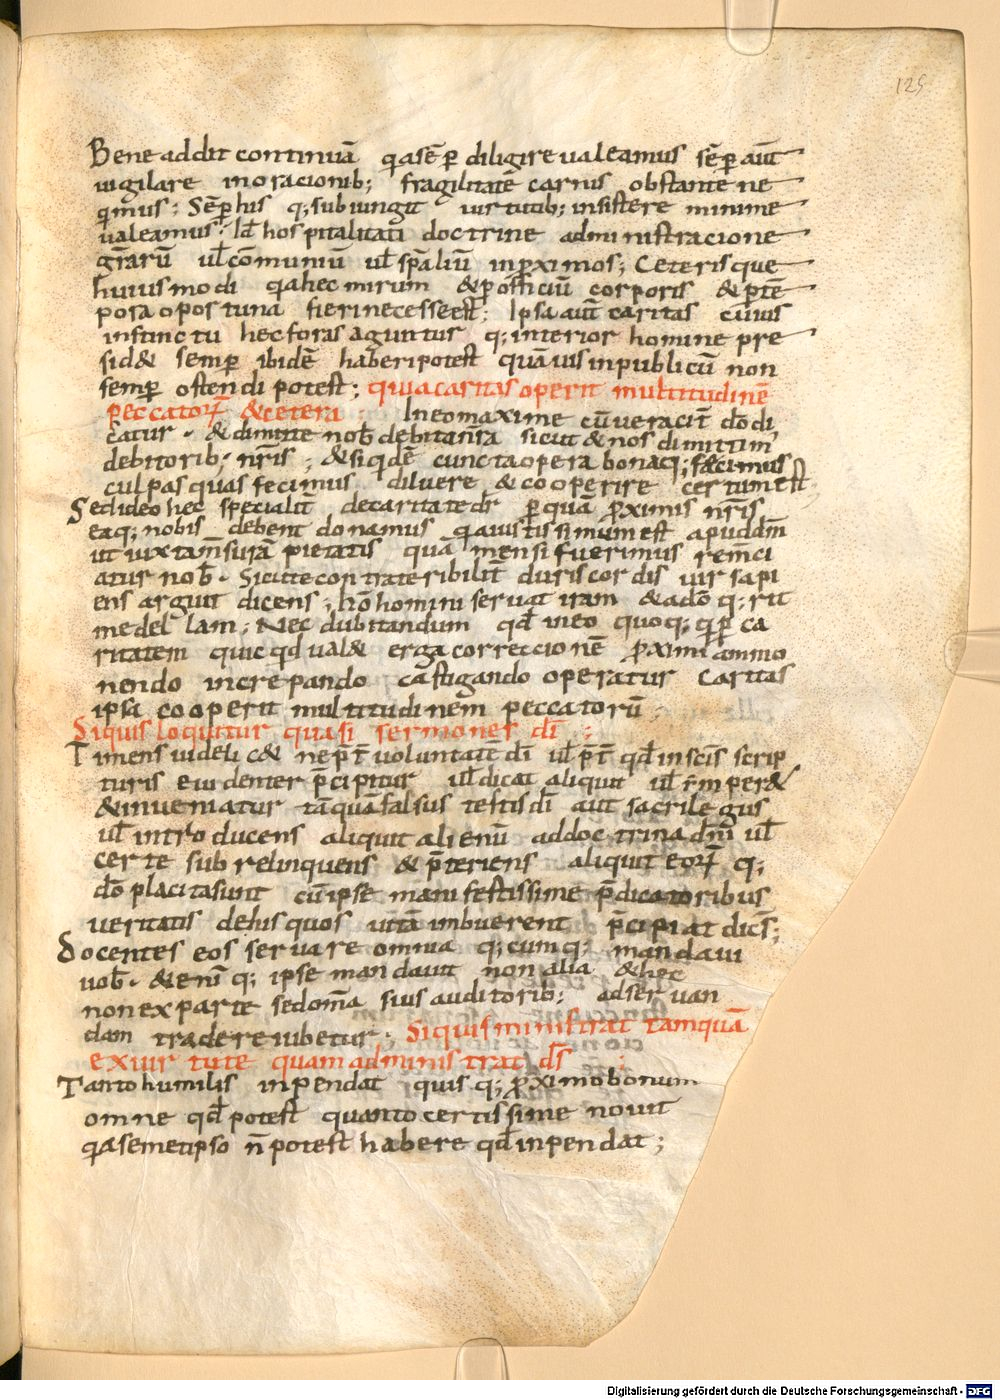 125
Bene addit continuā qa sēp diligire ualeamus sēp aūt
uigilare in oracionib; fragilitatē carnis obstante ne
qimus; Sēp his q; subiungit uirtutib; insistere minime
ualeamus. Id hospitalitati doctrine administracione
grarū uł cōmuniū uł spaliū in pximos; Ceterisque
huiusmodi qa hec mirum & p officiū corporis & p tē
pora oportuna fieri necesse est; Ipsa aūt caritas cuius
instinctu hec foras aguntur q; interior homine pre
sid& semp ibidē haberi potest quāuis in publicū non
semp ostendi potest; quia caritas operit multitudinē
peccatorꝝ & cetera; In eo maxime cū ueracit do di
catur. & dimitte nob debita nra sicut & nos dimittim
debitorib; nris; & siqdē cuncta opera bona q; fecimus
culpas quas fecimus diluere & cooperire certum est
Sed ideo hec specialit de caritate dr p quā pximis nris
ea q; nobis debent donamus qa iustissimum est apud dm
ut iuxta mensurā pietatis qua mensi fuerimus remci
atur nob. Sicut econtra teribilit duris cordis uir sapi
ens arguit dicens; hō homini seruat iram & a dō q; rit
medellam; Nec dubitandum qd in eo quoq; q p ca
ritatem quicqd ual& erga correccionē pximi ammo
nendo increpando castigando operatur caritas
ipsa cooperit multitudinem peccatorū
Siquis loquitur quasi sermones di;
Timens uidelic& ne p̄t uoluntatē di uł p̄t qd in scis scrip
turis euidenter pcipitur uł dicat aliquit uł imper&
& inueniatur tāquā falsus testis di aut sacrilegus
uł introducens aliquit alienū ad doctrina dni uł
certe subrelinquens & pteriens aliquit eorꝝ q;
dō placita sunt cū ipse manifestissime pdicatoribus
ueritatis de his quos uitā imbuerent pcipiat dicēs;
docentes eos seruare omnia q; cumq; mandaui
uob. & enī q; ipse mandauit non alia & hec
non ex parte sed omā suis auditorib; ad seruan
dam tradere iubetur; Siquis ministrat tamquā
ex uirtute quam administrat ds;
Tanto humilis inpendat quisq; pximo bonum
omne qd potest quanto certissime nouit
qa semetipso n potest habere qd inpendat;
Digitalisierung gefördert durch die Deutsche Forschungsgemeinschaft - DFG